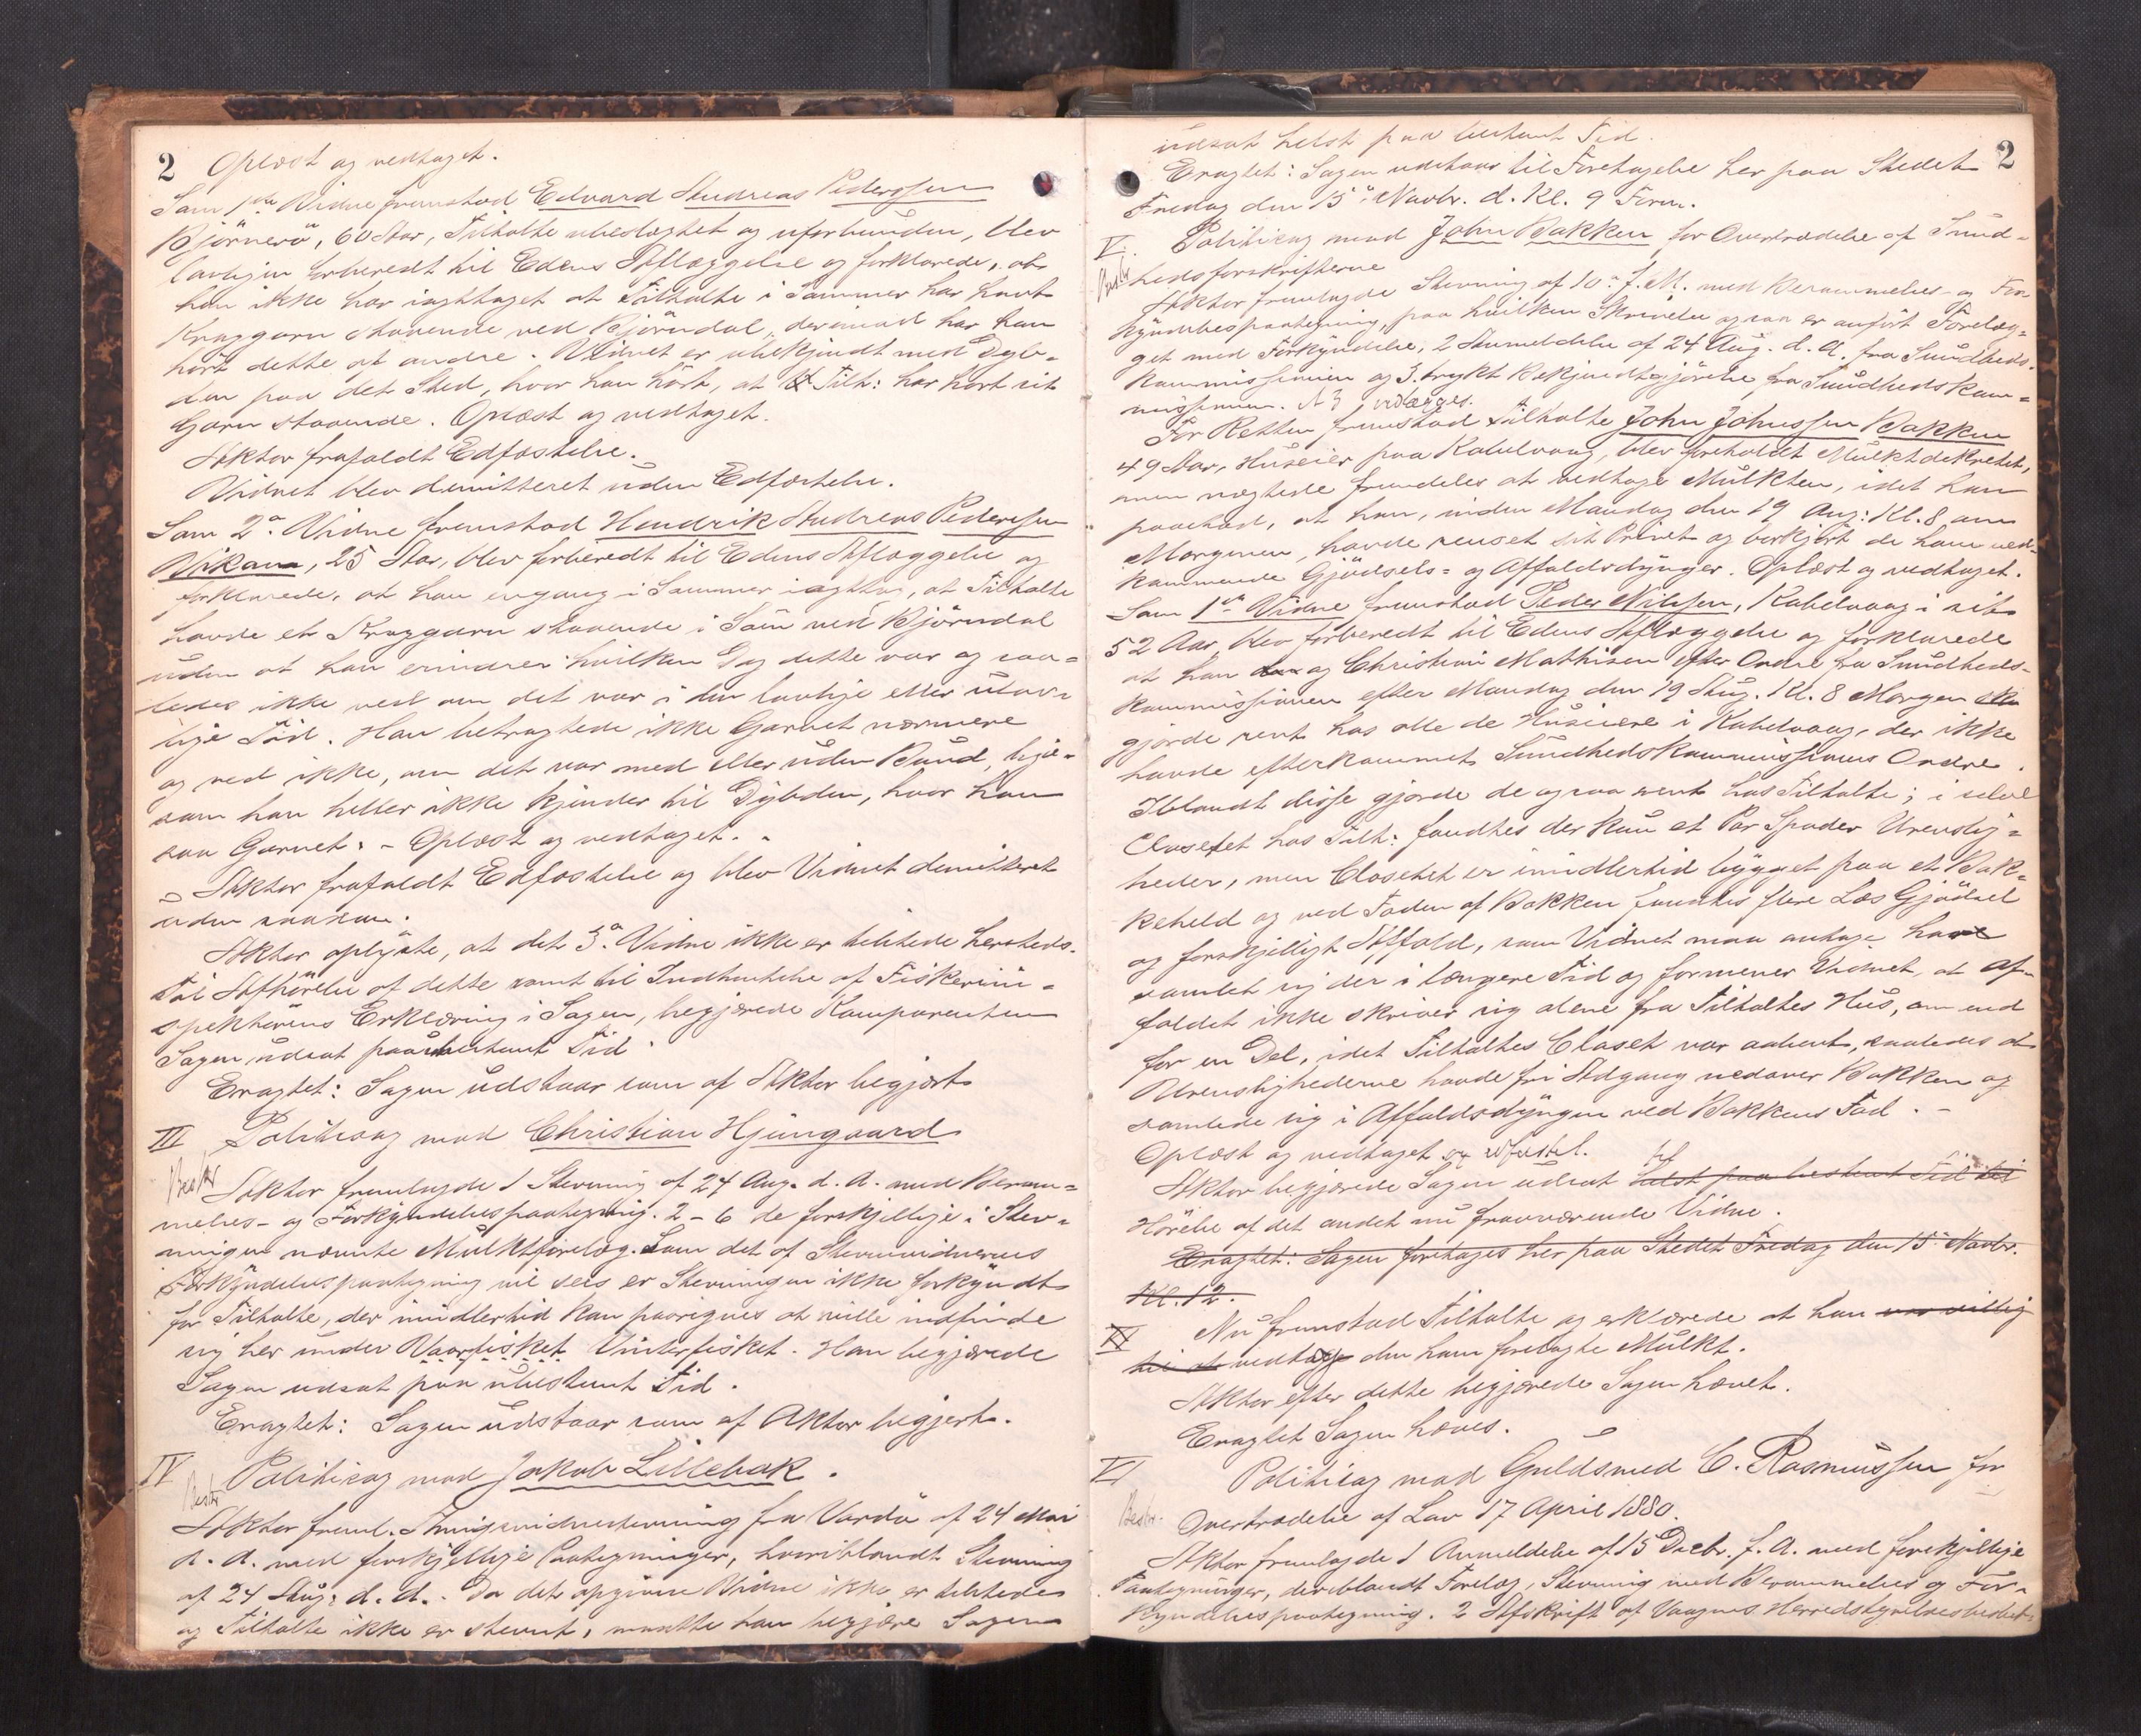 2 Oplæst og vedtaget.
Som 1ste Vidne fremstod Edvard Andreas Pederssen
Björnerö, 60 Aar, Tiltalte ubeslægtet og uforbunden, blev
lovligen forberedt til Edens Aflæggelse og forklarede, at
han ikke har iagttaget at Tiltalte i Sommer har havt
Kroggarn staaende ved Björndal, derimod har han
hört dette af andre. Vidnet er ubekjendt med Dyb-
den paa det Sted, hvor han hörte, at Tilt: har havt sit
Garn staaende. Oplæst og vedtaget.
Aktor frafaldt Edfæstelse.
Vidnet blev demitteret uden Edfæstelse.
Som 2det Vidne fremstod Hendrik Andreas Pederssen
Vikan, 25 Aar, blev forberedt til Edens Aflæggelse og
forklarede, at han engang i Sommer iagttog, at Tiltalte
havde et Kroggarn staaende i Söen ved Björndal
uden at han erindrer hvilken Dag dette var og saa-
ledes ikke ved om det var i den lovlige eller ulov-
lige Tid. Han betragtede ikke Garnet nærmere
og ved ikke, om det var med eller uden Bund, lige-
som han heller ikke kjender til Dybden, hvor han
saa Garnet. - Oplæst og vedtaget. -
Aktor frafaldt Edfæstelse og blev Vidnet demitteret
uden saadan.
Aktor oplyste, at det 3die Vidne ikke er tilstede hersteds.
Til Afhörelse af dette samt til Indhentelse af Fiskeriin-
spektörens Erklæring i Sagen, begjærede Komparenten
Sagen udsat paa ubestemt Tid.
Eragtet: Sagen udstaar som af Aktor begjært
III Politisag mod Christian Hjüngaard
Besltr
Aktor fremlagde 1 Stevning af 24 Aug. d. A. med Beram-
melses- og Forkyndelsespaategning. 2-6 de forskjellige i Stev-
ningen nævnte Mulktforelæg. Som det af Stevnevidnernes
Forkyndelsespaategning vil sees er Stevningen ikke forkyndt
for Tiltalte, der imidlertid kan paaregnes at ville indfinde
sig her under Vaarfisket Vinterfisket. Han begjærede
Sagen udsat paa ubestemt Tid.
Eragtet: Sagen udstaar som af Aktor begjert.
IV Politisag mod Jakob Lillebak.
Besltr
Aktor freml. Thingsvidnestevning fra Vardö af 24 Mai
d. A. med forskjellige Paategninger, hvoriblandt Stevning
af 24 Aug. d. A.. Da det opgivne Vidne ikke er tilstede
og Tiltalte ikke er stevnt, maatte han begjære Sagen
udsat helst paa bestemt Tid. 2
Eragtet: Sagen udstaar til Foretagelse her paa Stedet
Fredag den 15de Novbr. d. Kl. 9 Form.
V. Politisag mod John Bakken for Overtrædelse af Sund-
hedsforskrifterne
Besltr
Aktor fremlagde Stevning af 10de f. M. med Berammelses- og For-
kyndelsespaategning, paa hvilken Skrivelse ogsaa er anfört Forelæg-
get med Forkyndelse, 2 Anmeldelse af 24 Aug. d. A. fra Sundheds-
kommissionen og 3. trykt Bekjendtgjörelse fra Sundhedskom-
missionen. No 3 vedlægges.
For Retten fremstod Tiltalte John Johnssen Bakken
49 Aar, Huseier paa Kabelvaag, blev foreholdt Mulktdekretet,
men nægtede fremdeles at vedtage Mulkten, idet han
paastod, at han, inden Mandag den 19 Aug: Kl. 8 om
Morgenen, havde renset sit Privet og bortkjört de ham ved-
kommende Gjödsels- og Affaldsdynger. Oplæst og vedtaget.
Som 1ste Vidne fremstod Peder Nilssen, Kabelvaag i sit
52 Aar, blev forberedt til Edens Aflæggelse og forklarede
at han og Christian Mathisen efter Ordre fra Sundheds-
kommissionen efter Mandag den 19 Aug. Kl. 8 Morgen
gjorde rent hos alle de Huseiere i Kabelvaag, der ikke
havde efterkommet Sundhedskommissionens Ordre.
Iblandt disse gjorde de ogsaa rent hos Tiltalte; i selve
Closettet hos Tilt: fandtes der kun et Par Spader Urenslig-
heder, men Closettet er imidlertid bygget paa et Bak-
keheld og ved Foden af Bakken fandtes flere Læs Gjödsel
og forskjelligt Affald, som Vidnet maa antage have
samlet sig der i længere Tid og formener Vidnet, at Af-
faldet ikke skriver sig alene fra Tiltaltes Hus, om end
for en Del, idet Tiltaltes Closet var aabent, saaledes at
Urenslighederne havde fri Adgang nedover Bakken og
samlede sig i Affaldsdyngen ved Bakkens Fod. -
Oplæst og vedtaget og edfæstet.
Aktor begjærede Sagen udsat til helst paa bestemt Tid til
Hörelse af det andet nu fraværende Vidne.
Eragtet: Sagen foretages her paa Stedet Fredag den 15de Novbr.
Kl. 12.
Nu fremstod Tiltalte og erklærede at han var villig
til at vedtage den ham forelagte Mulkt.
Aktor efter dette begjærede Sagen hævet.
Eragtet Sagen hæves.
VI Politisag mod Guldsmed C. Rasmussen for
Besltr.
Overtrædelse af Lov 17 April 1880.
Aktor fremlagde 1 Anmeldelse af 15 Decbr. f. A. med forskjellige
Paategninger, deriblandt Forelæg, Stevning med Berammelses og For-
kyndelsespaategning. 2 Afskrift af Vaagnes Herredstyrelsesbeslut-